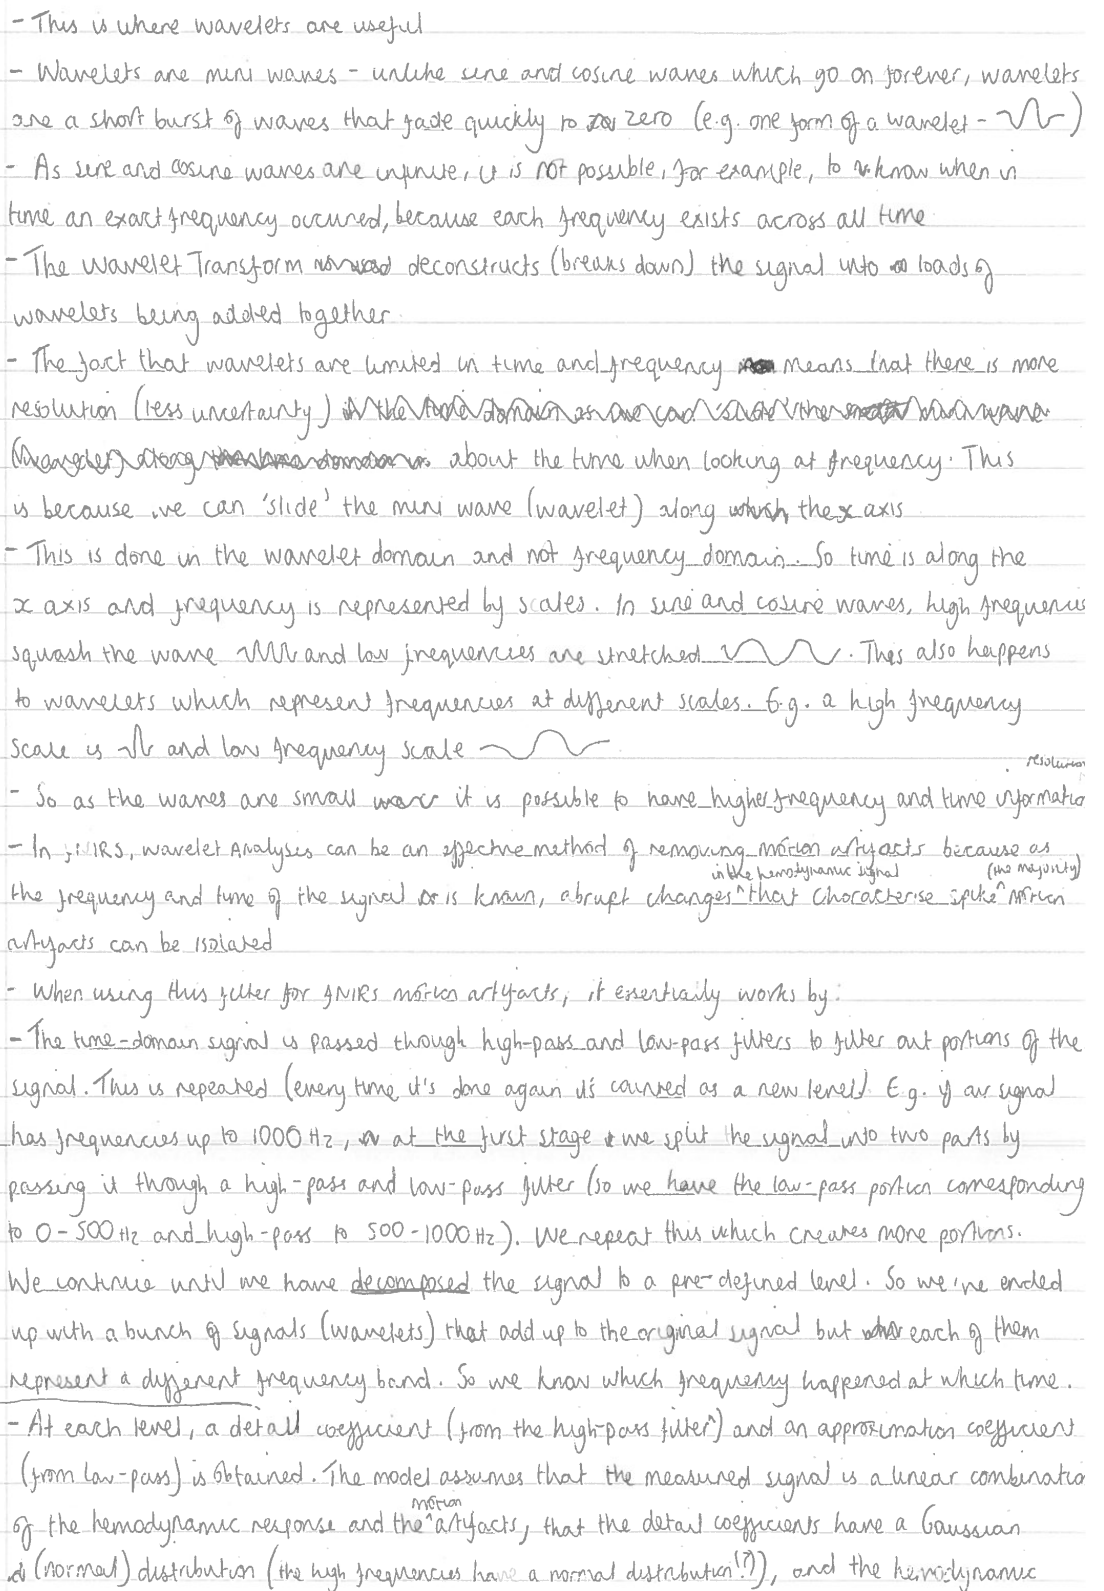 - This is where wavelets are useful
- Wavelets are mini waves - unlike sine and cosine waves which go on forever, wavelets
are a short burst of waves that fade quickly to zero (e.g. one form of a wavelet - )
- As sine and cosine waves are infinite, it is not possible, for example, to know when in
time an exact frequency occured, because each frequency exists across all time
- The Wavelet Transform deconstructs (breaks down) the signal into loads of
wavelets being added together
- The fact that wavelets are limited in time and frequency means that there is more
resolution (less uncertainty)
about the time when looking at frequency. This
is because we can 'slide' the mini wave (wavelet) along the x axis
- This is done in the wavelet domain and not frequency domain. So time is along the
x axis and frequency is represented by scales. In sine and cosine waves, high frequencies
squash the wave and low frequencies are stretched . This also happens
to wavelets which represent frequencies at different scales. E.g. a high frequency
scale is and low frequency scale
resolution
- So as the waves are small it is possible to have higher frequency and time informatio
- In fNIRS, wavelet Analyses can be an effective method of removing motion artifacts because as
in the hemodynamic signal (the majority)
the frequency and time of the signal is known, abrupt changes ^ that characterise spike ^ motion
artifacts can be isolated
- When using this filter for fNIRS motion artifacts, it essentially works by:
- The time-domain signal is passed through high-pass and low-pass filters to filter out portions of the
signal. This is repeated (every time it's done again it's counted as a new level) E.g. if our signal
has frequencies up to 1000 Hz, at the first stage we split the signal into two parts by
passing it through a high-pass and low-pass filter (so we have the low-pass portion corresponding
to 0-500 Hz and high-pass to 500-1000 Hz). We repeat this which creates more portions.
We continue until we have decomposed the signal to a pre-defined level. So we've ended
up with a bunch of signals (wavelets) that add up to the original signal but each of them
represent a different frequency band. So we know which frequency happened at which time.
- At each level, a detail coefficient (from the high-pass filter) and an approximation coefficient
(from low-pass) is obtained. The model assumes that the measured signal is a linear combinatio
motion
of the hemodynamic response and the ^ artifacts, that the detail coefficients have a Gaussian
(normal) distribution (the high frequencies have a normal distribution(?)), and the hemodynamic